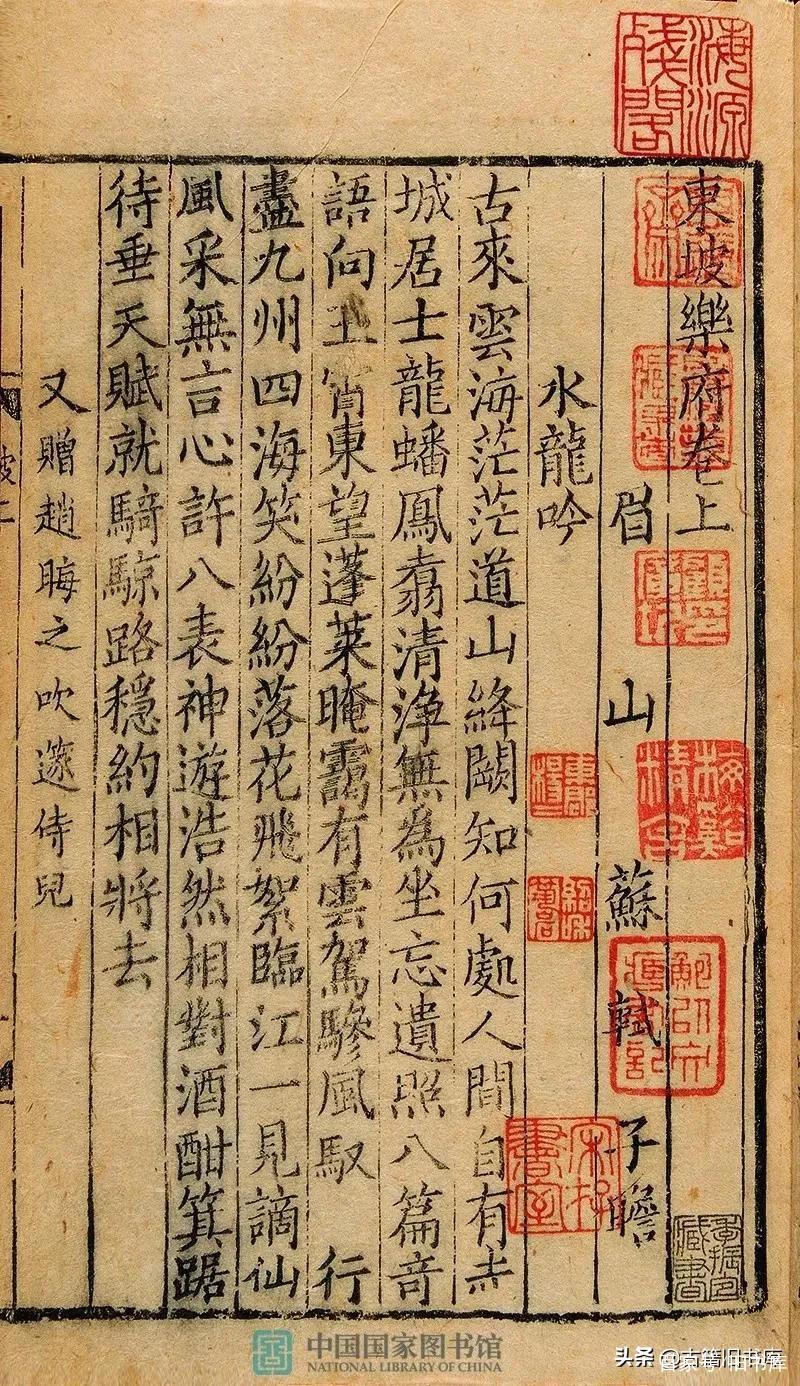 東坡樂府卷上
眉山蘇軾子瞻
水龍吟
古來雲海茫茫道山絳闕知何處人間自有赤
城居士龍蟠鳳翥清淨無為坐忘遺照八篇奇
語向玉霄東望蓬萊晻靄有雲駕驂風馭 行
盡九州四海笑紛紛落花飛絮臨江一見謫仙
風采無言心許八表神遊浩然相對酒酣箕踞
待垂天賦就騎鯨路穩約相將去
又贈趙晦之吹篴侍兒
海源殘閣
梅谿精舍
宋存書室
季振宜藏書
中国国家图书馆
NATIONAL LIBRARY OF CHINA
头条 @古籍旧书库